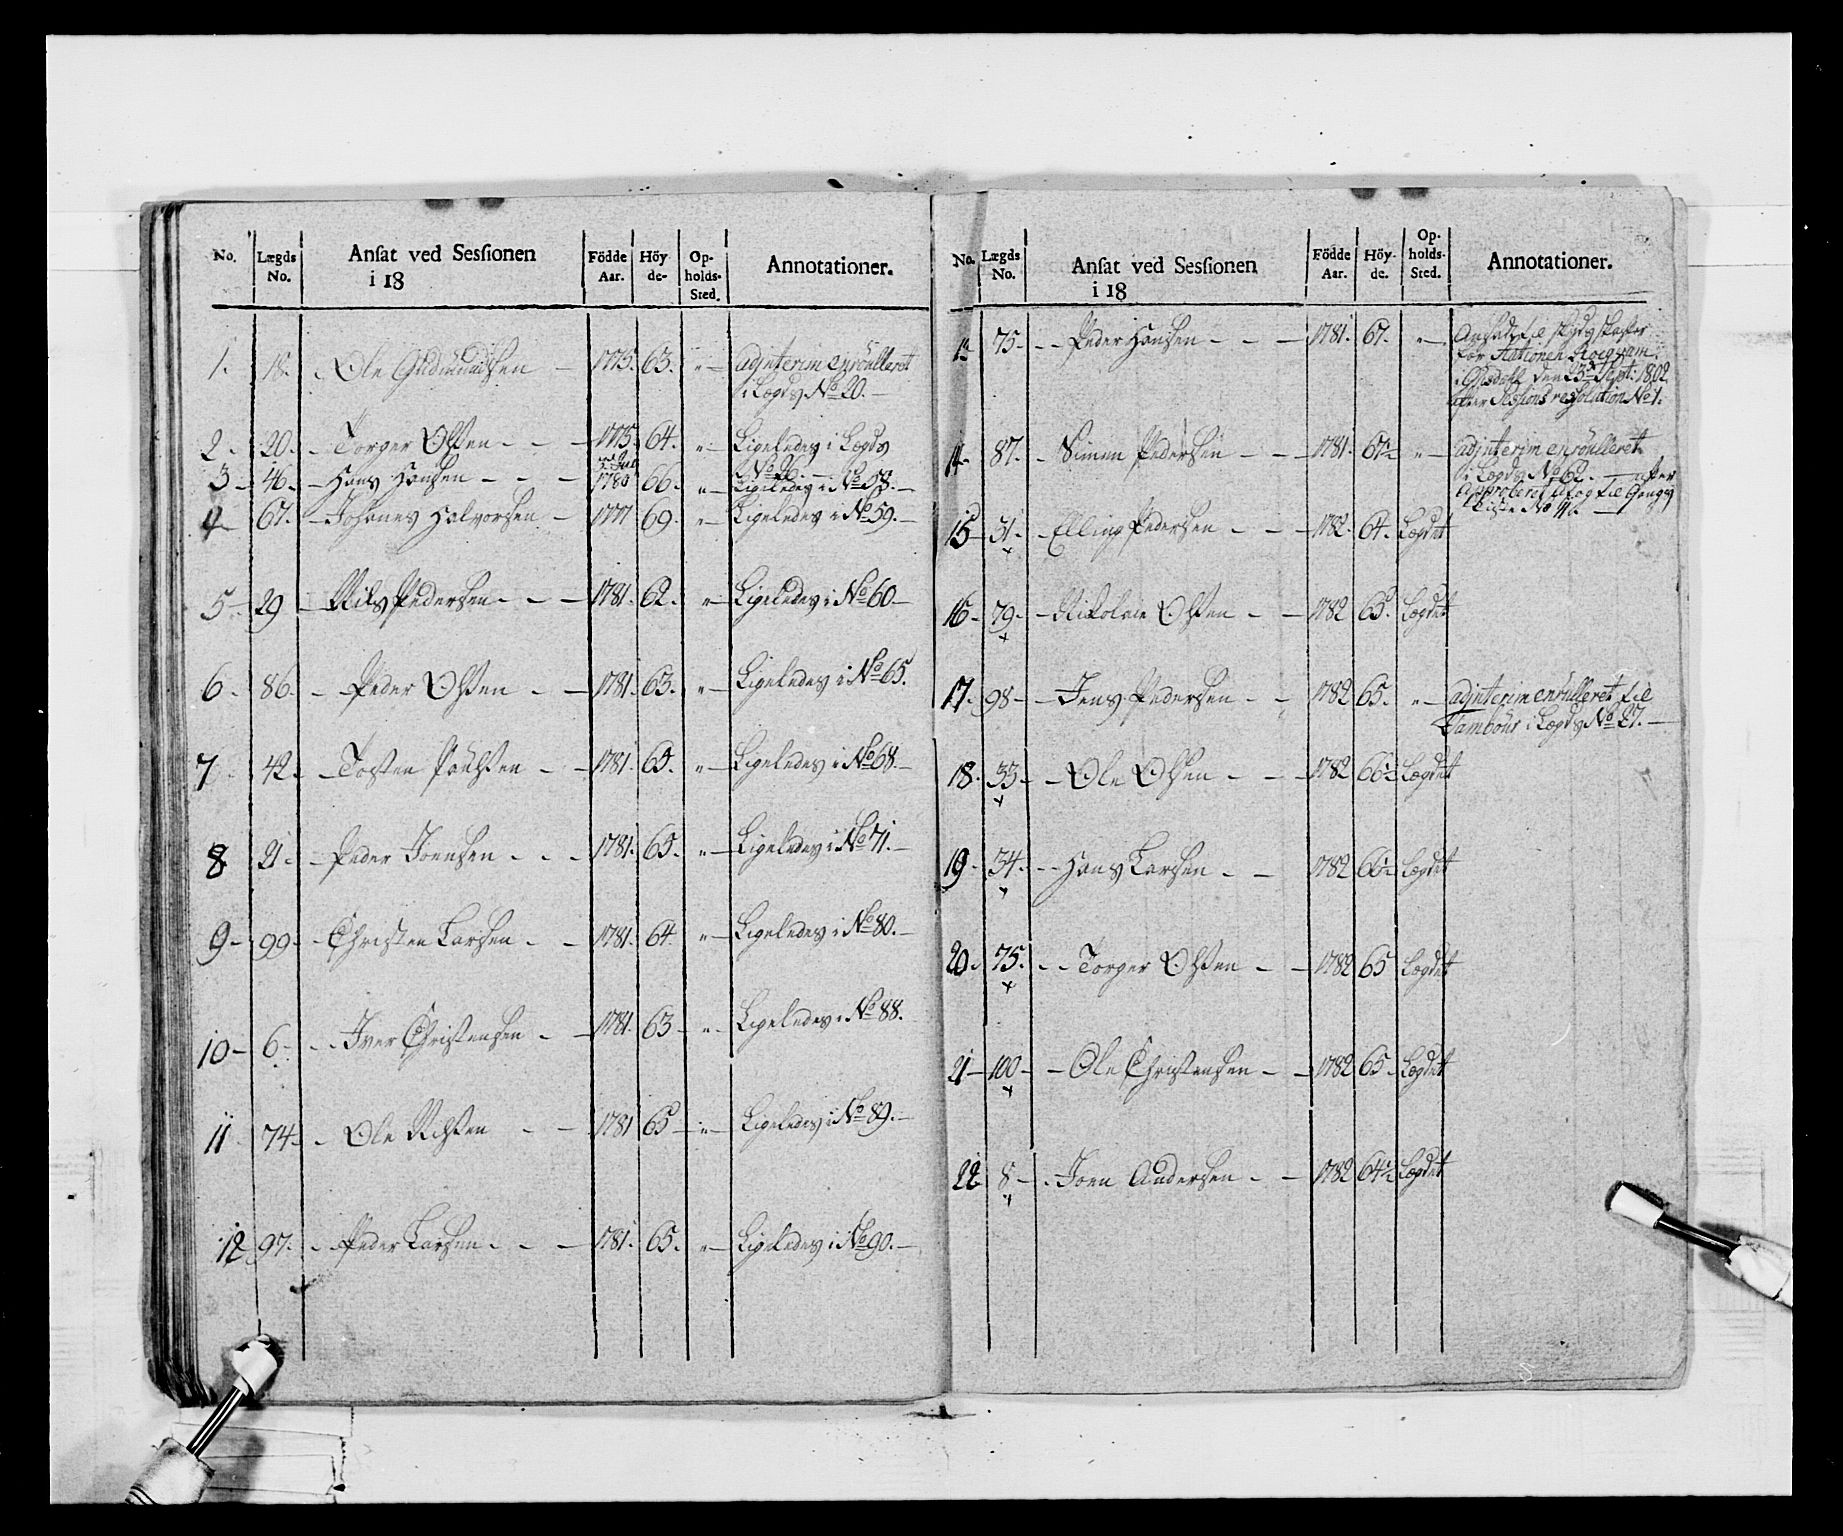 No. Lægds No. Ansat ved Sessionen i 18 Födde Aar. Höy-de- Op-holds-Sted. Annotationer.
1. 18. Ole Gudmundsen 1775. 63. „ adjnterim enroulleret
i Lægds No 20.
2. 20. Torger Olsen 1775. 64. „ Ligeledes i Lægds
No 26.
3 46. Hans Hansen 1780 66. „ Ligeledes i No 58.
4 67. Johanes Halvorsen 1777 69. „ Ligeledes i No 59.
5 29 Nils Pedersen 1781. 62. „ Ligeledes i No 60
6. 86. Peder Olsen 1781. 63. „ Ligeledes i No 65.
7 42. Tosten Poulsen 1781. 65. „ Ligeledes i No 68.
8 21. Peder Joensen 1781. 65. „ Ligeledes i No 71.
9 99 Christen Larsen 1781. 64 „ Ligeledes i No 80.
10 6 Iver Christensen 1781. 63 „ Ligeledes i No 88.
11 74 Ole Nilsen 1781 65 „ Ligeledes i No 89.
12 97. Peder Larsen 1781. 65. „ Ligeledes i No 90.
No. Lægds No. Ansat ved Sessionen i 18 Födde Aar. Höy-de. Op-holds-Sted. Annotationer.
13 75 Peder Hansen 1781. 67. „ Ansadt til skydsskaffer
for Stationen
den 23de Sept: 1802
efter Sessions resolution No 1.
14 87. Simen Pedersen 1781. 67½ „ adjnterim enroulleret
i Lægds No 62. efter
Approberet Afgang
Liste No 4.
15 31 Elling Pedersen 1782. 64. Lægdet
x
16. 79. Nikolai Olsen 1782 65. Lægdet
x
17. 98 Jens Pedersen 1782 65. „ adjnterim enroulleret til
Tambour i Lægds No 27.
18. 33 Ole Olsen 1782 66½ Lægdet
x
19 34. Hans Larsen 1782 66½ Lægdet
x
20. 75. Torger Olsen 1782 65 Lægdet
x
21 100 Ole Christensen 1782 65 Lægdet
x
22 8 Joen Andersen 1782 64½ Lægdet
x